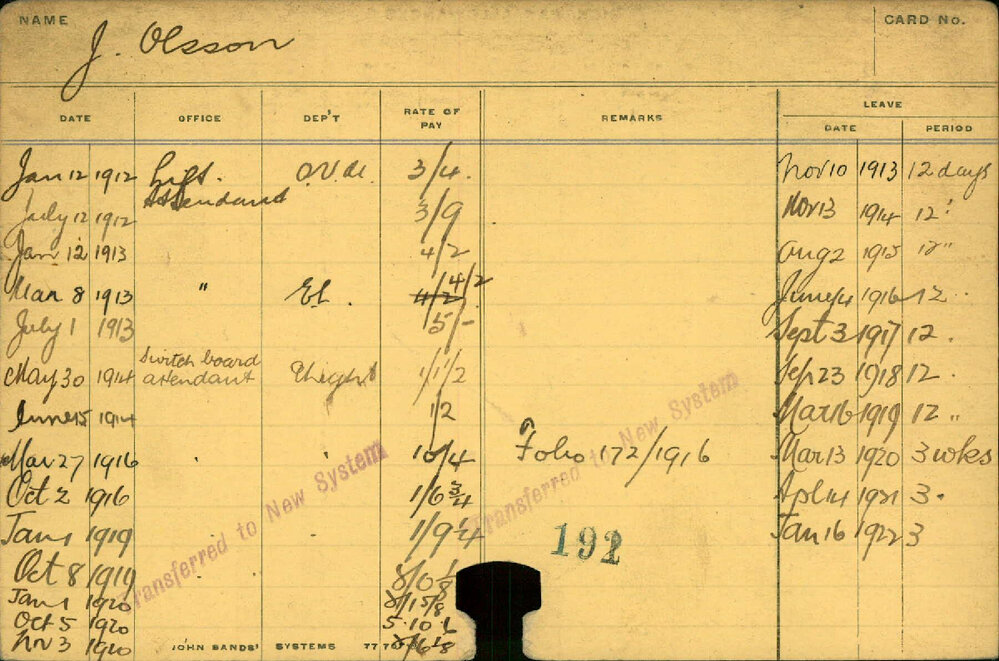 NAME J. Olsson CARD No.
DATE OFFICE DEP'T RATE OF PAY REMARKS LEAVE
DATE PERIOD
Jan 12 1912 Lift Attendant 3/4. Nov 10 1913 12 days
July 12 1912 3/9 Nov 13 1914 12 "
Jan 12 1913 4/2 Aug 2 1915 12 "
Mar 8 1913 " El. 4/2 4/2 June 14 1916 12 ..
July 1 1913 5/- Sept 3 1917 12 .
May 30 1914 Switch board attendant 1/1/2 Sep 23 1918 12 .
June 15 1914 1/2 Mar 16 1919 12 "
Mar 27 1916 " " /4 Folio 172/1916 Mar 13 1920 3 wks
Oct 2 1916 1/6 3/4 Apl 14 1921 3 "
Jan 1 1919 1/9 1/4 Jan 16 1922 3
Oct 8 1919
Jan 1 1920
Oct 5 1920
Nov 3 1920
Transferred to New System
Transferred to New System
192
JOHN SANDS' SYSTEMS